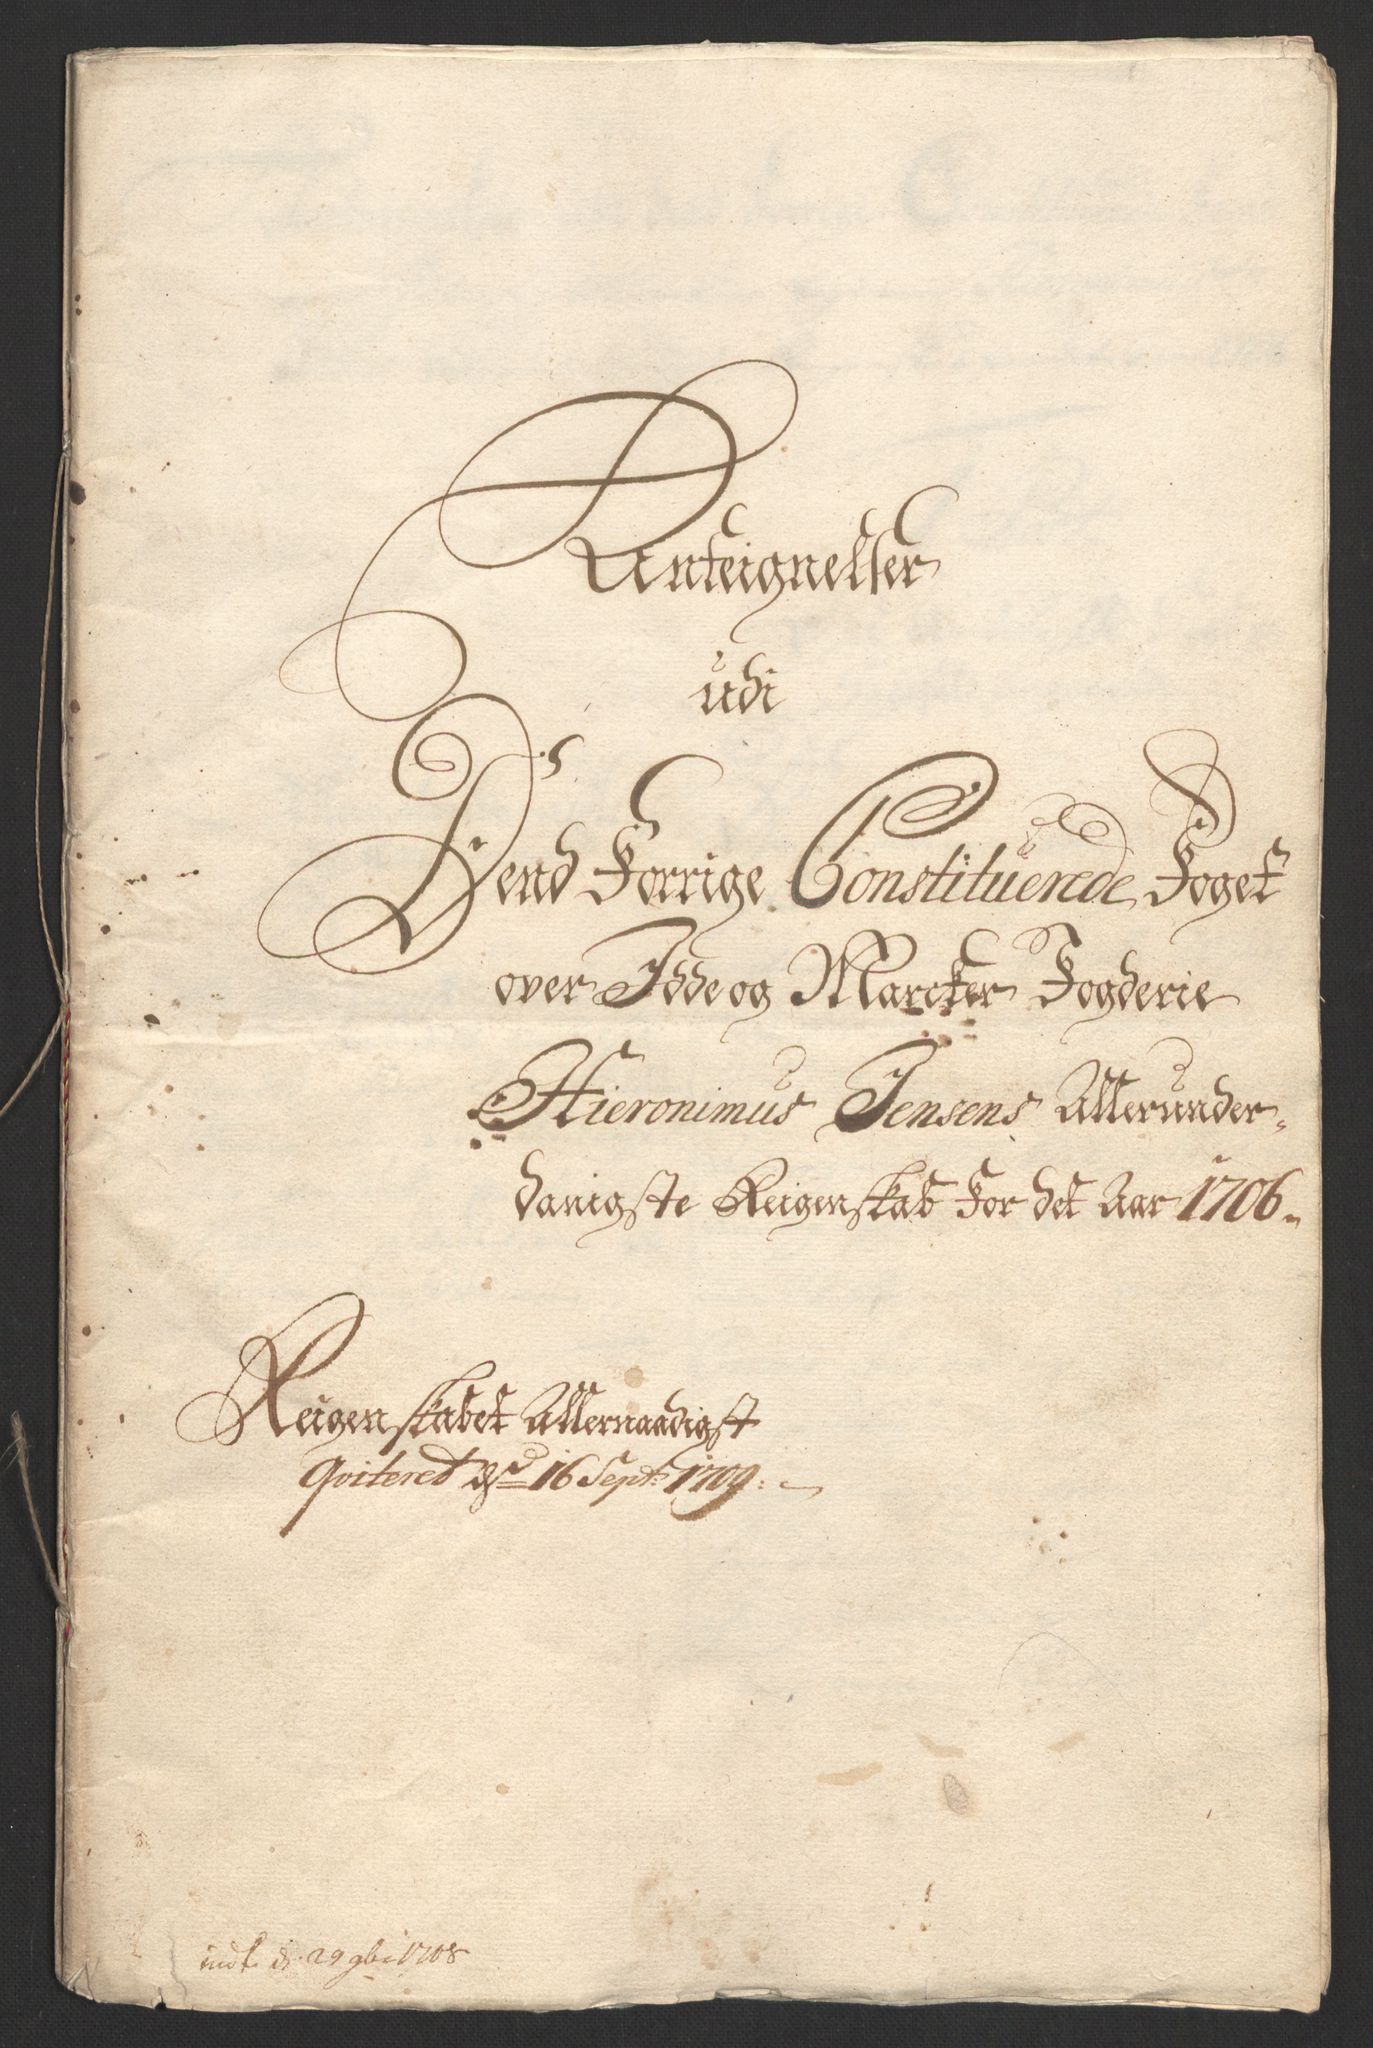 Anteignelser
udi
Dend Forrige Constituerede Foget
over Idde og Marcker Fogderie
Hieronimus Jensens Allerunder-
danigste Reigenskab for det Aar 1706.
Reigenskabet Allernaadigst
Qviteret dend 16 Sept: 1709.
indk. d. 29 9br 1708